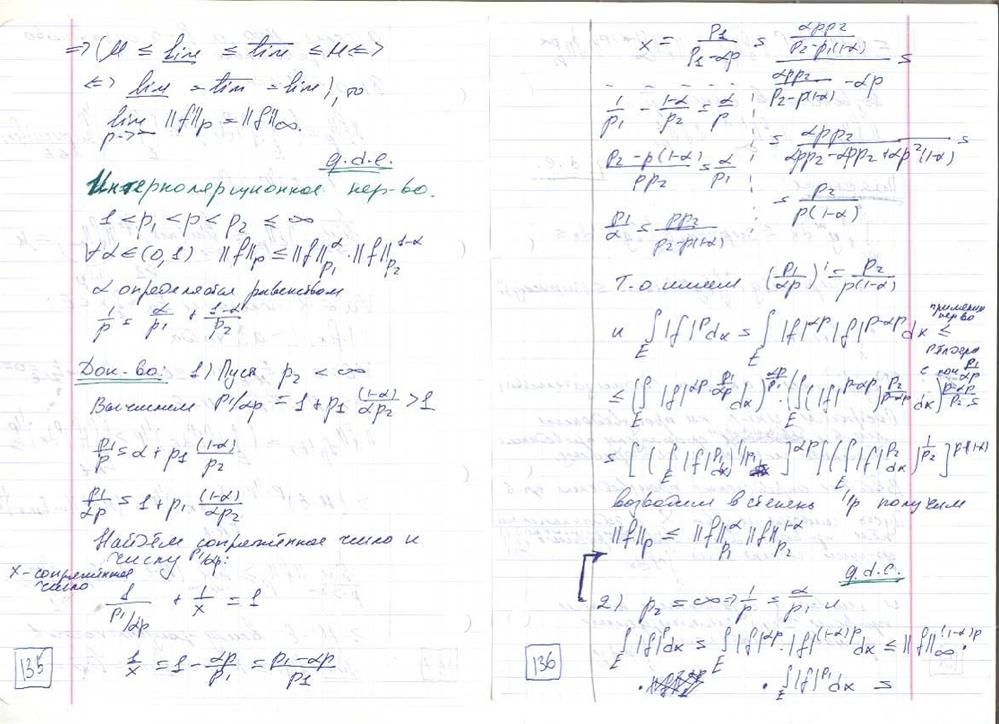 => (M ≤ lim ≤ lim ≤ M <=>
<=> lim = lim = lim), то
lim ||f||p = ||f||∞.
p→∞
q.d.e.
Интерполяционное нер-во.
1 < p₁ < p < p₂ ≤ ∞
∀α∈(0,1) ||f||p ≤ ||f||^α_p₁ · ||f||^1-α_p₂
α определяется равенством
1/p = α/p₁ + (1-α)/p₂
Док-во: 1) Пусть p₂ < ∞
Вычислим p₁/αp = 1 + p₁ (1-α)/αp₂ > 1
p₁/p = α + p₁ (1-α)/p₂
p₁/αp = 1 + p₁ (1-α)/αp₂
Найдём сопряжённое число к
числу p₁/αp:
x - сопряжённое
число
1/(p₁/αp) + 1/x = 1
1/x = 1 - αp/p₁ = (p₁-αp)/p₁
135
x = p₁/(p₁-αp) = (αpp₂/(p₂-p(1-α)))/(αpp₂/(p₂-p(1-α)) - αp) =
1/p - (1-α)/p₂ = α/p₁
= αpp₂/(αpp₂-αpp₂+αp²(1-α)) =
(p₂-p(1-α))/pp₂ = α/p₁
= p₂/(p(1-α))
p₁/α = pp₂/(p₂-p(1-α))
Т.о имеем (p₁/αp)' = p₂/(p(1-α))
и ∫_E |f|^p dx = ∫_E |f|^αp |f|^p-αp dx ≤
применим
нер-во
Гёльдера
с p₁/αp
≤ (∫_E |f|^(αp·p₁/αp) dx)^(αp/p₁) · (∫_E (|f|^p-αp)^(p₂/(p-αp)) dx)^((p-αp)/p₂) =
= [(∫_E |f|^p₁ dx)^1/p₁]^αp [(∫_E |f|^p₂ dx)^1/p₂]^p(1-α)
возводим в степень 1/p получим
||f||p ≤ ||f||^α_p₁ ||f||^1-α_p₂
q.d.e.
2) p₂ = ∞ => 1/p = α/p₁ и
∫_E |f|^p dx = ∫_E |f|^αp · |f|^(1-α)p dx ≤ ||f||∞^(1-α)p ·
· ∫_E |f|^p₁ dx =
136